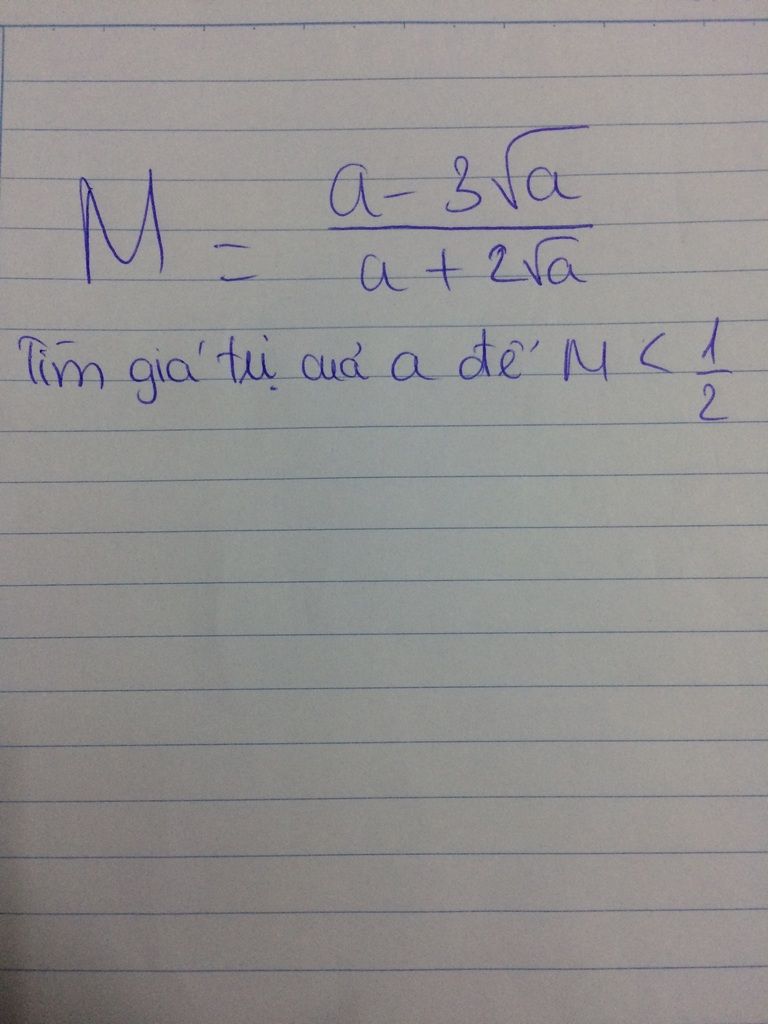 M = (a - 3√a)/(a + 2√a)
Tìm giá trị của a để M < 1/2